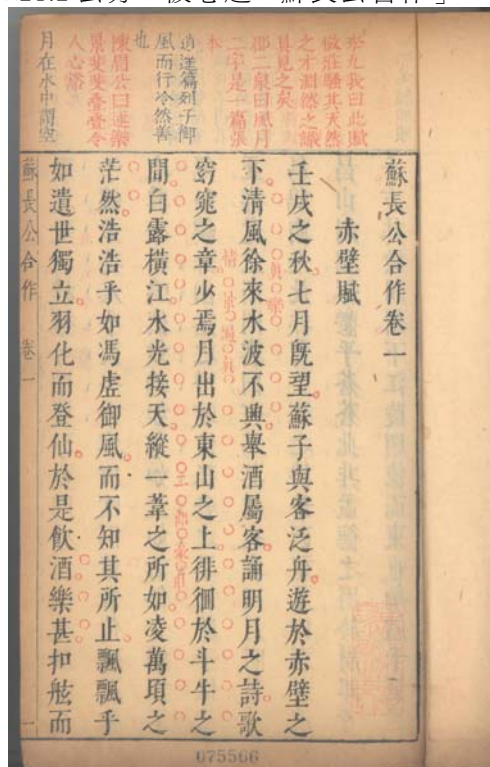 蘇長公合作卷一
赤壁賦
壬戌之秋七月既望蘇子與客泛舟遊於赤壁之
下清風徐來水波不興舉酒屬客誦明月之詩歌
窈窕之章少焉月出於東山之上徘徊於斗牛之
間白露橫江水光接天縱一葦之所如凌萬頃之
茫然浩浩乎如馮虛御風而不知其所止飄飄乎
如遺世獨立羽化而登仙於是飲酒樂甚扣舷而
蘇長公合作
卷一
一
李九我曰此賦
做莊騷其天然
之才淵然之識
具見之矣
邵二泉曰風月
二字是一篇張
本
逍遙篇列子御
風而行冷然善
也
陳眉公曰連樂
景斐斐亹亹令
人心
月在水中謂空
075566